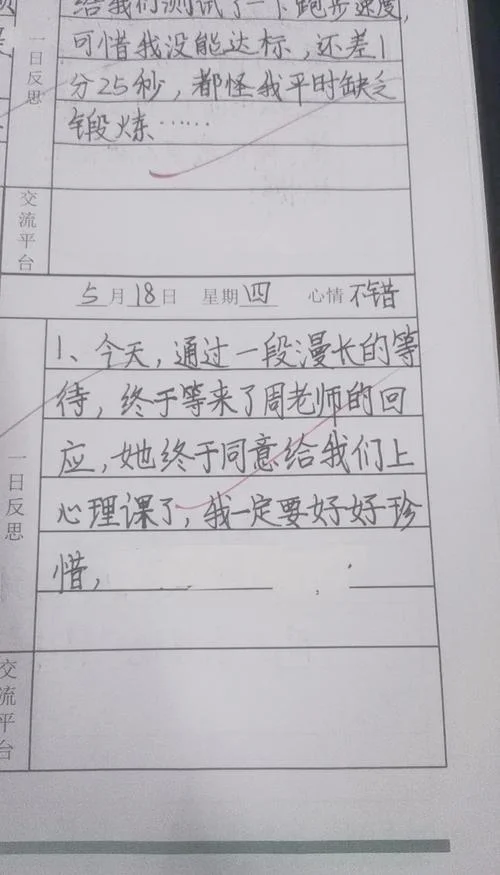 给我们测试了一下跑步速度,
可惜我没能达标,还差1
分25秒,都怪我平时缺乏
锻炼……
一日反思
交流平台
5月18日 星期四 心情 不错
1、今天,通过一段漫长的等
待,终于等来了周老师的回
应,她终于同意给我们上
心理课了,我一定要好好珍
惜,
一日反思
交流平台